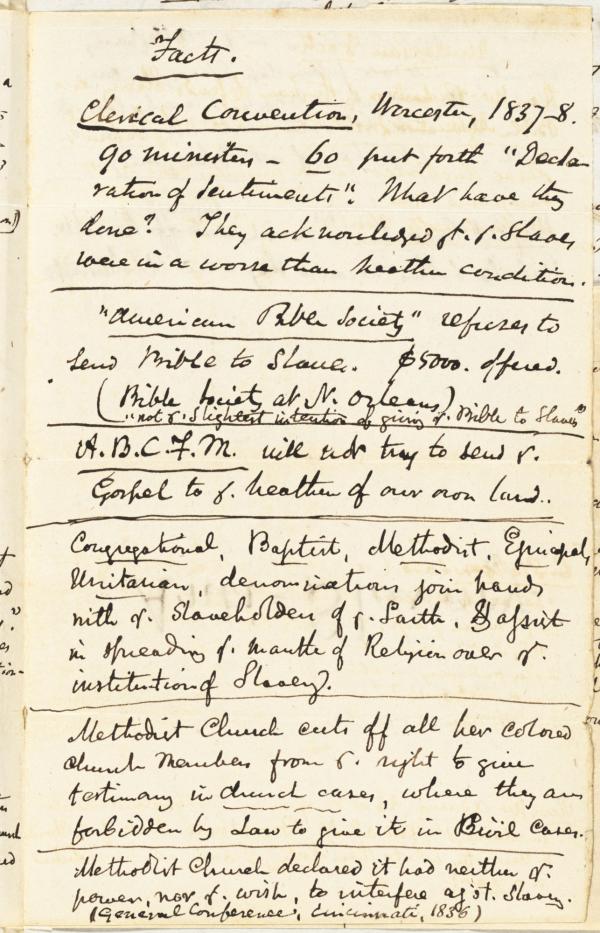 Facts.
Clerical Convention, Worcester, 1837-8.
90 ministers - 60 put forth "Decla-
ration of Sentiments". What have they
done? They acknowledged yt. ye. Slaves
were in a worse than heathen condition.
"American Bible Society" refuses to
send Bible to Slaves. $5000. offered.
(Bible Society at N. Orleans)
"not ye. slightest intention of giving ye. Bible to Slaves"
A.B.C.F.M. will not try to send ye.
Gospel to ye. heathen of our own land.
Congregational, Baptist, Methodist, Episcopal,
Unitarian, denominations join hands
with ye. Slaveholders of ye. South, & assist
in spreading ye. mantle of Religion over ye.
institution of Slavery.
Methodist Church cuts off all her colored
church members from ye. right to give
testimony in church cases, where they are
forbidden by Law to give it in Civil Cases.
Methodist Church declared it had neither ye.
power, nor ye. wish, to interfere agst. Slavery.
(General Conference, Cincinnati, 1836)